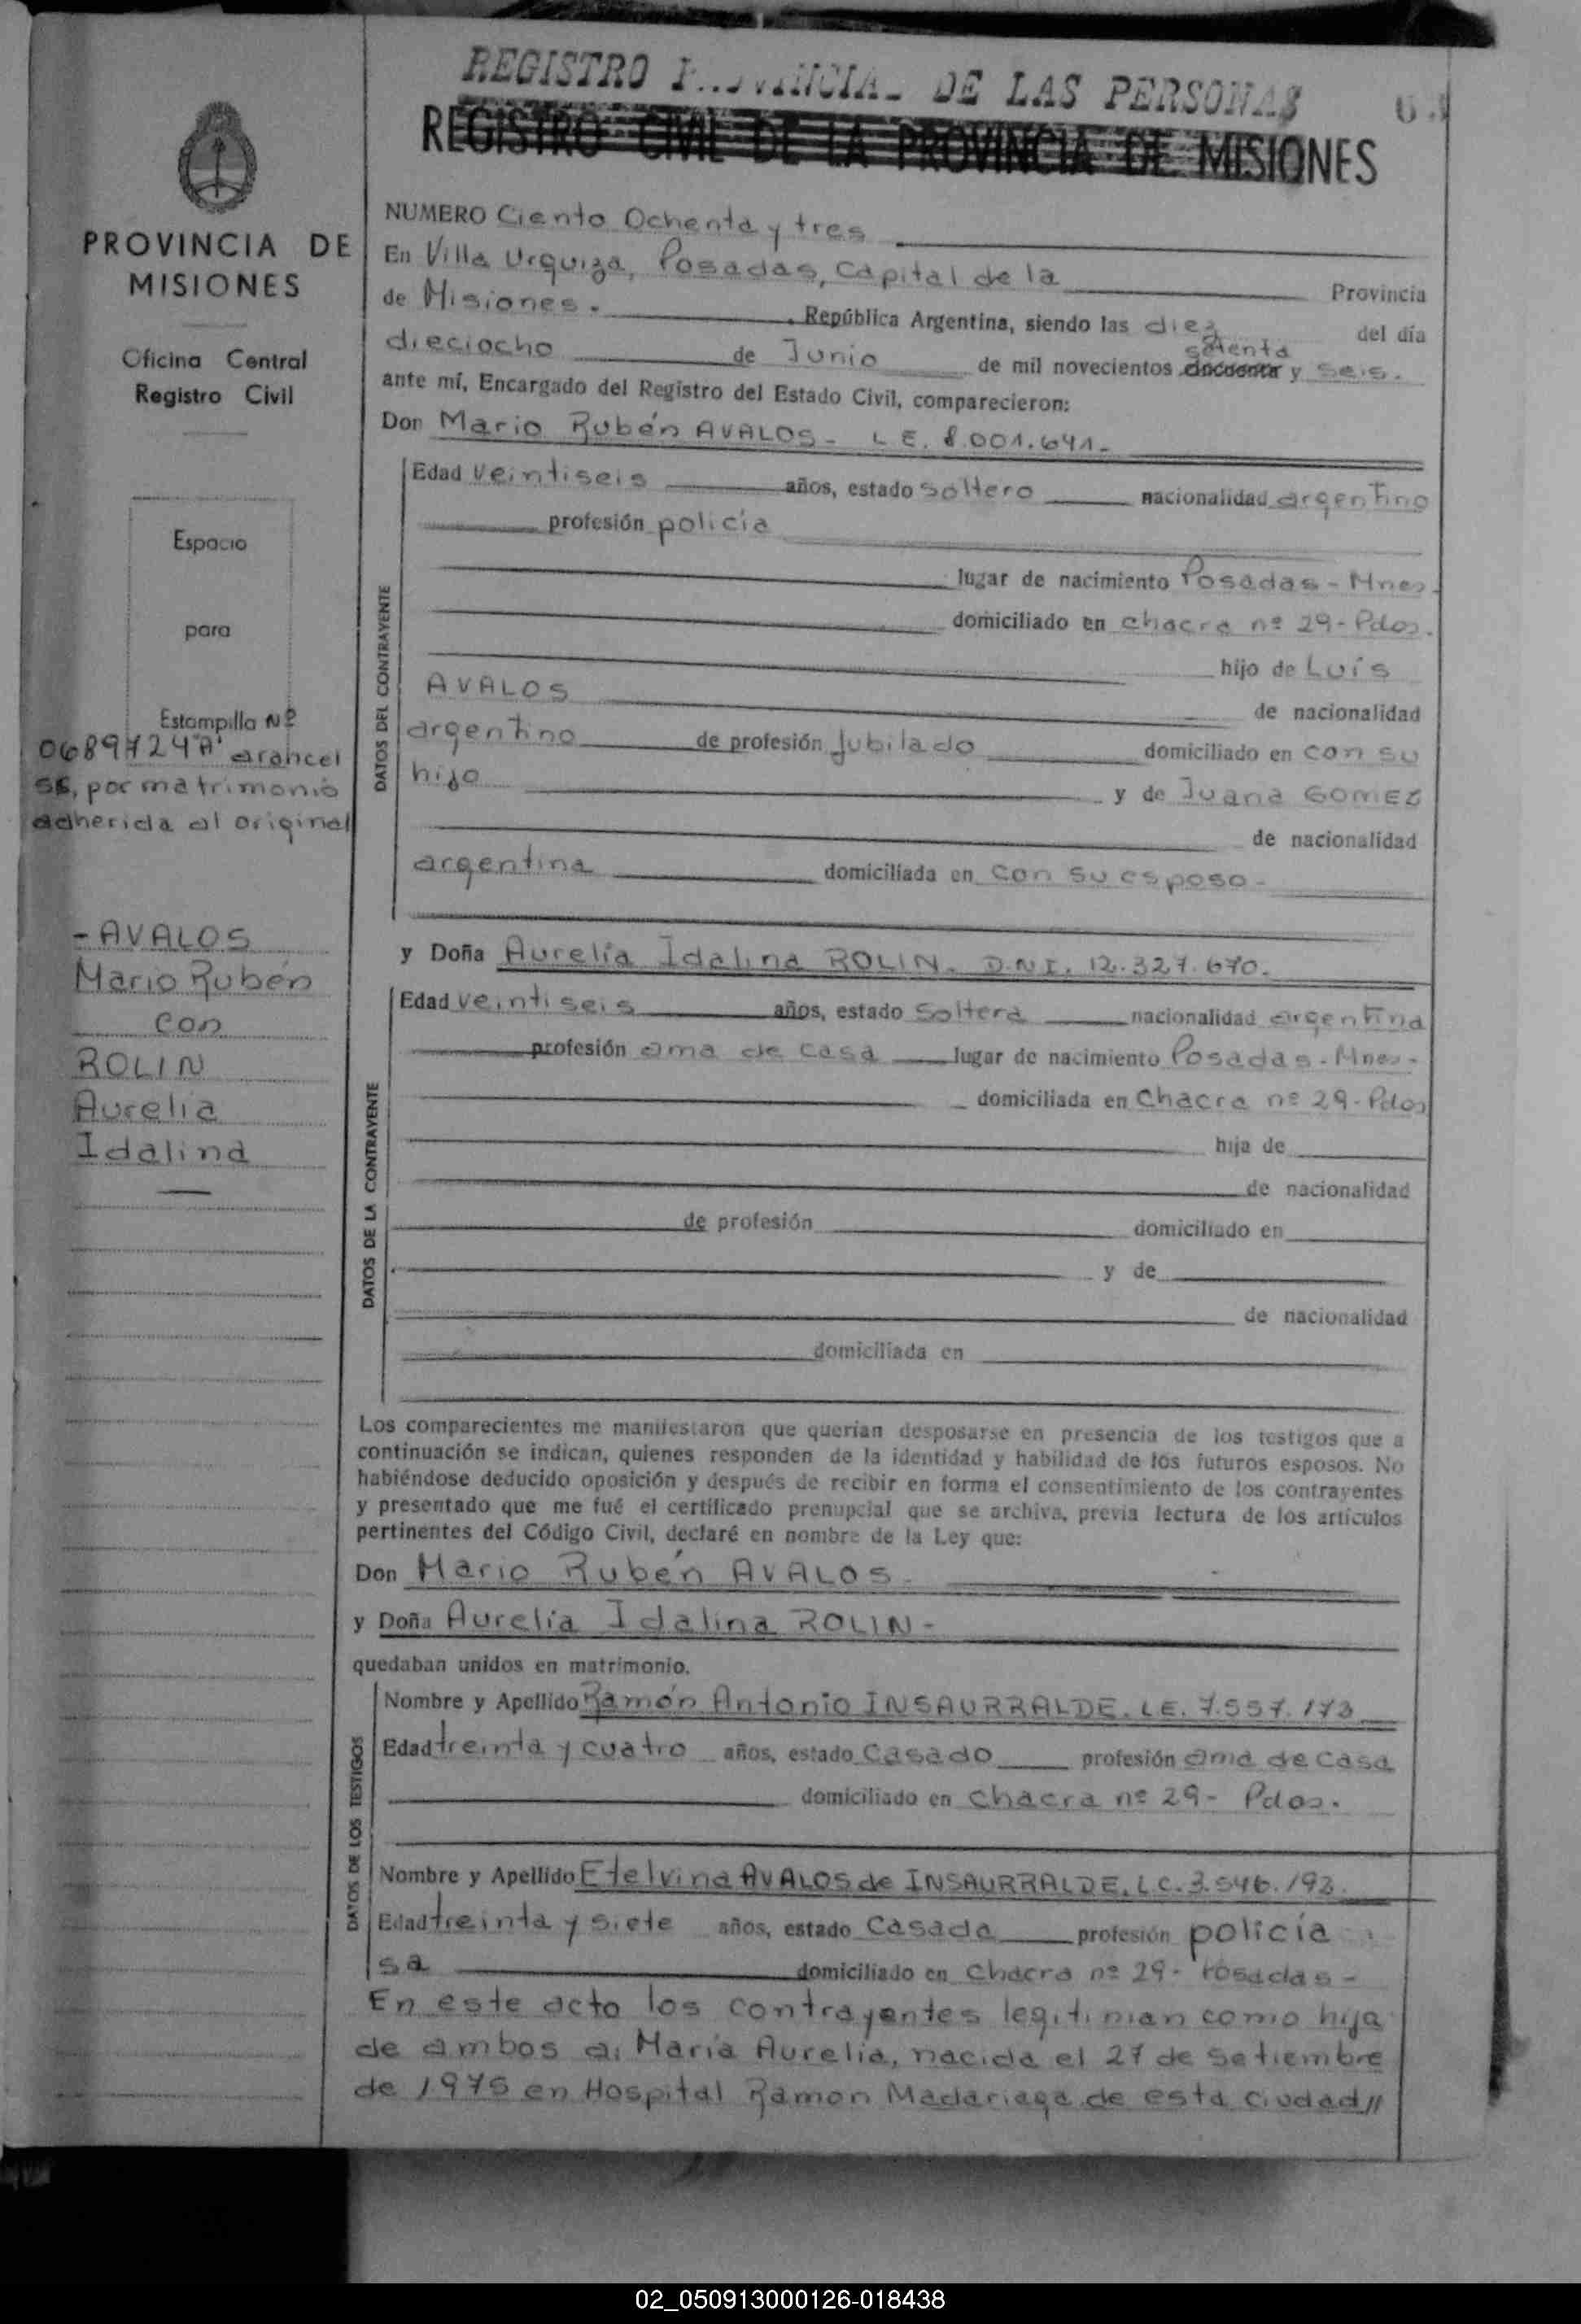 REGISTRO PROVINCIAL DE LAS PERSONAS
REGISTRO CIVIL DE LA PROVINCIA DE MISIONES
PROVINCIA DE
MISIONES
Oficina Central
Registro Civil
Espacio
para
Estampilla Nº
0689724"A" arancel
, por matrimonio
adherida al original
- AVALOS
Mario Rubén
con
ROLIN
Aurelia
Idalina
NUMERO Ciento Ochenta y tres
En Villa Urquiza, Posadas, Capital de la Provincia
de Misiones. República Argentina, siendo las diez del día
dieciocho de Junio de mil novecientos cincuenta setenta y seis.
ante mí, Encargado del Registro del Estado Civil, comparecieron:
Don Mario Rubén AVALOS - L E. 8.001.641.-
DATOS DEL CONTRAYENTE
Edad veintiseis años, estado soltero nacionalidad argentino
profesión policía
lugar de nacimiento Posadas - Mnes.
domiciliado en chacra nº 29 - Pdas.
hijo de Luís
AVALOS de nacionalidad
argentino de profesión jubilado domiciliado en con su
hijo y de Juana GOMEZ
de nacionalidad
argentina domiciliada en con su esposo -
y Doña Aurelia Idalina ROLIN. D.N.I. 12.327.670.
DATOS DE LA CONTRAYENTE
Edad veintiseis años, estado soltera nacionalidad argentina
profesión ama de casa lugar de nacimiento Posadas - Mnes -
domiciliada en Chacra nº 29 - Pdas
hija de
de nacionalidad
de profesión domiciliado en
y de
de nacionalidad
domiciliada en
Los comparecientes me manifestaron que querían desposarse en presencia de los testigos que a
continuación se indican, quienes responden de la identidad y habilidad de los futuros esposos. No
habiéndose deducido oposición y después de recibir en forma el consentimiento de los contrayentes
y presentado que me fué el certificado prenupcial que se archiva, previa lectura de los artículos
pertinentes del Código Civil, declaré en nombre de la Ley que:
Don Mario Rubén AVALOS -
y Doña Aurelia Idalina ROLIN -
quedaban unidos en matrimonio.
DATOS DE LOS TESTIGOS
Nombre y Apellido Ramón Antonio INSAURRALDE. L E. 7.557.173
Edad treinta y cuatro años, estado Casado profesión ama de casa
domiciliado en chacra nº 29 - Pdas.
Nombre y Apellido Etelvina AVALOS de INSAURRALDE. L C. 3.546.193.
Edad treinta y siete años, estado Casada profesión policía
sa domiciliado en chacra nº 29 - Posadas -
En este acto los contrayentes legitiman como hija
de ambos a: María Aurelia, nacida el 27 de setiembre
de 1975 en Hospital Ramon Madariaga de esta ciudad//
02_050913000126-018438